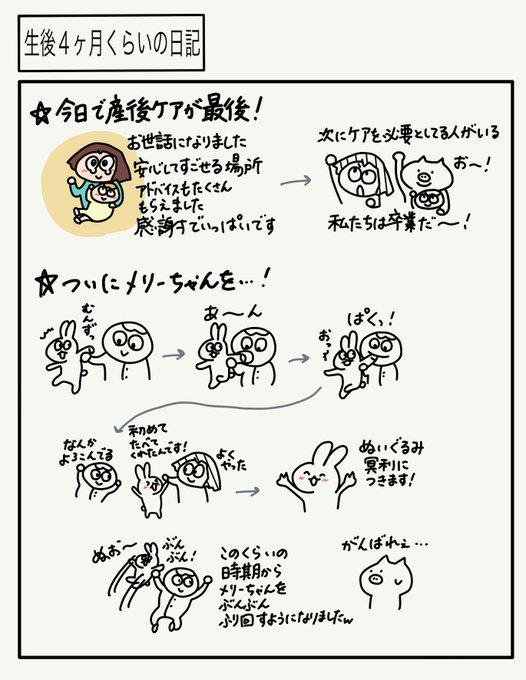 生後4ヶ月くらいの日記
☆今日で産後ケアが最後!
お世話になりました
安心してすごせる場所
アドバイスもたくさん
もらえました
感謝すでいっぱいです
次にケアを必要としてる人がいる
お〜!
私たちは卒業だ〜!
☆ついにメリーちゃんを…!
むんずっ
あ〜ん
ぱくっ!
おっ
なんか
よろこんでる
初めて
たべて
くれたんです!
よく
やった
ぬいぐるみ
冥利に
つきます!
ぬお〜
ぶん
ぶん!
このくらいの
時期から
メリーちゃんを
ぶんぶん
ふり回すようになりましたw
がんばれぇ…